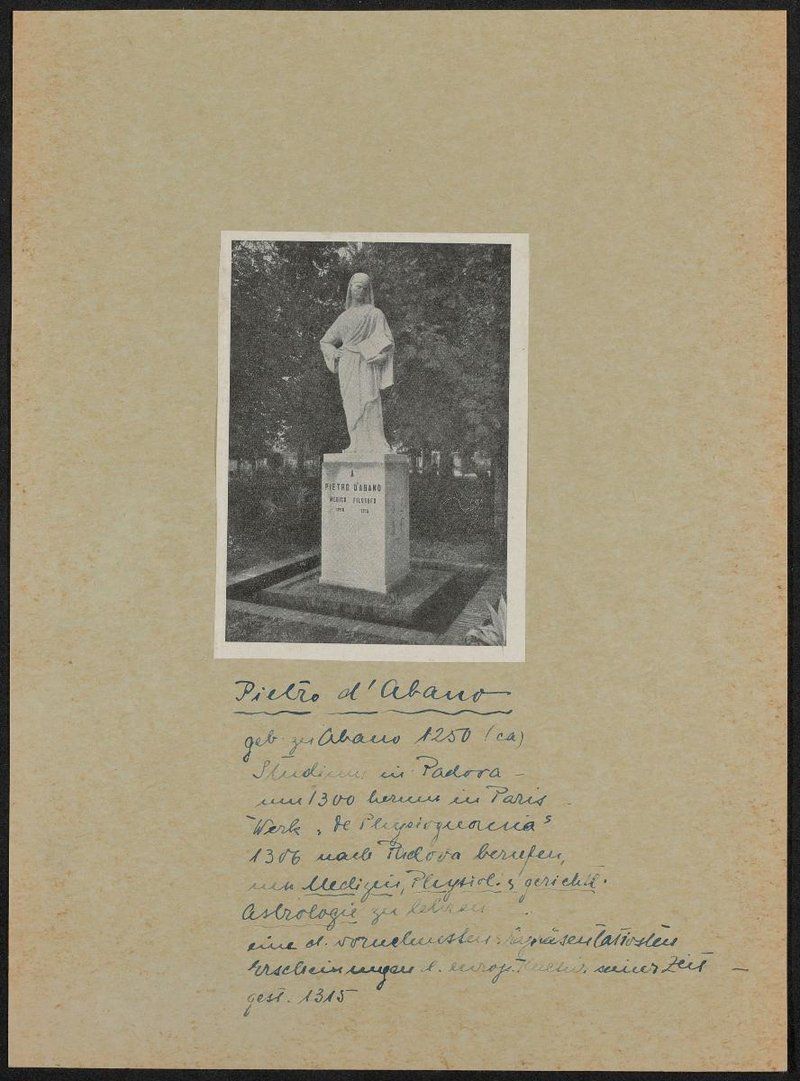 A
PIETRO D'ABANO
MEDICO FILOSOFO
Pietro d'Abano
geb. zu Abano 1250 (ca)
Studium in Padova –
um 1300 herum in Paris
Werk „de Physiognomia"
1306 nach Padova berufen,
um Medizin, Physiol. & gerichtl.
Astrologie zu lehren
eine d. vornehmsten, repräsentativsten
Erscheinungen d. europ. Kultur seiner Zeit –
gest. 1315